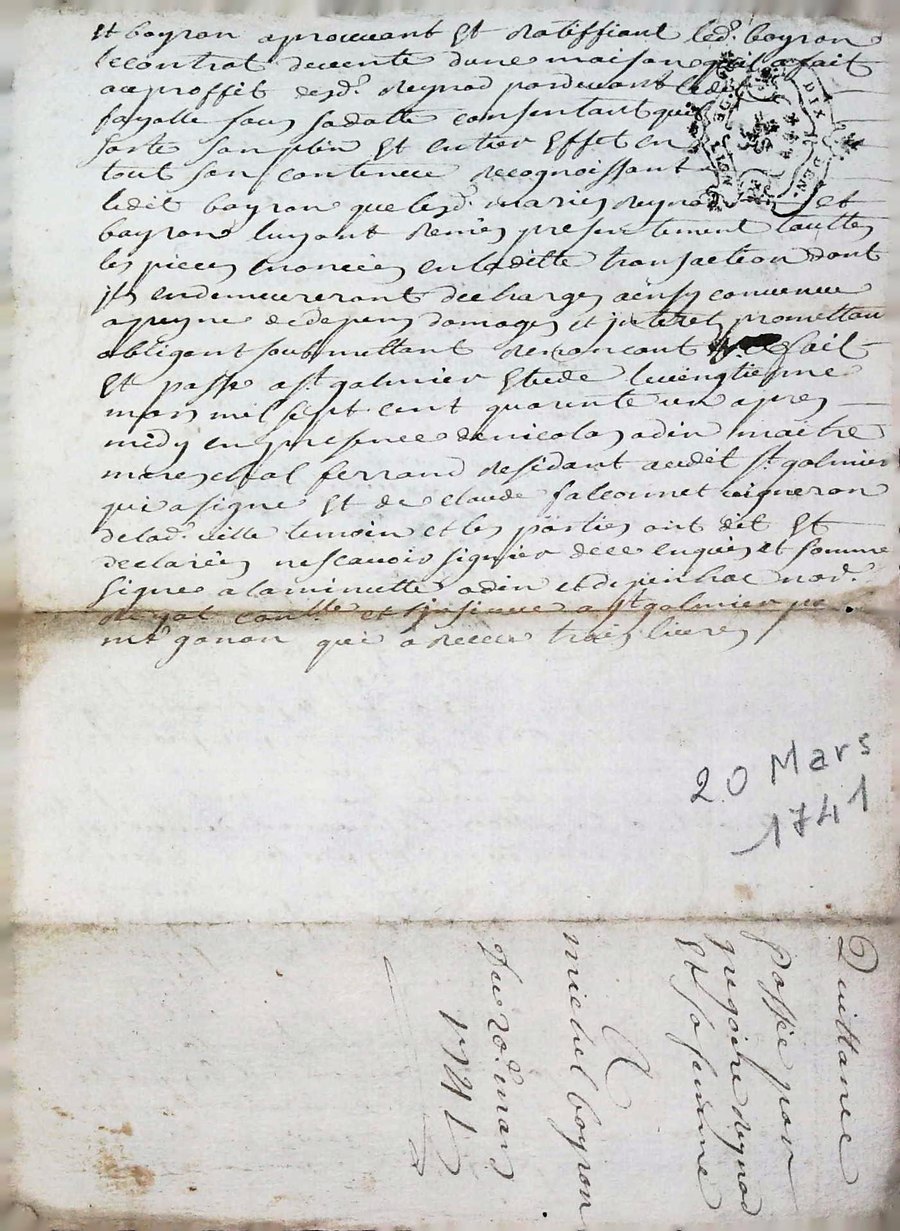 et boyron aprouuant et ratiffiant led. boyron
le contrat de vente dune maison quil a fait
au proffit desd. reynod pardeuant led.
fayolle sous sa datte consentant quil
sorte son plin et entier effet en
tout son contenu recognoissant
ledit boyron que lesd. mariés reynod et
boyron luy ont remis presentement touttes
les pieces enoncées en laditte transaction dont
ils en demeureront decharges ainsy convenu
a peyne de depens domages et jnterets promettant
obligeant soubmettant renoncant fait
et passe a st galmier etude le vingtieme
mars mil sept cent quarente un apres
midy en presence de nicolas odin maitre
marechal ferrand residant audit st galmier
qui a signe et de claude falconnet vigneron
de lad. ville temoin et les parties ont dit et
declarées ne scavoir signer de ce enquis et somme
signe a la minutte odin et notr.
royal a st galmier
mr ganon qui a receu trois livres
DIX DEN.
LION
20 Mars
1741
Quittance
passée par
gregoire reynod
et sa femme
A
michel boyron
du 20e mars
1741